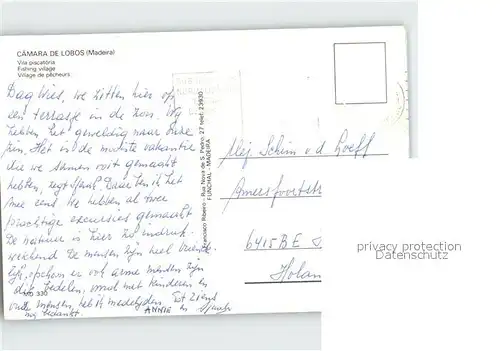 CÂMARA DE LOBOS (Madeira)
Vila piscatória
Fishing village
Village de pêcheurs
Dag Wies, we zitten hier op
een terrasje in de zon. Wy
hebben het geweldig naar onze
zin. Het is de mooiste vakantie
die we samen ooit gemaakt
hebben, zegt Sjaak. Daar ben ik het
mee eens. We hebben al twee
prachtige excursies gemaakt
De natuur is hier zo indruk-
wekkend. De mensen zijn heel vriende-
lijk, ophem er ook arme mensen zijn
die bedelen, vooral met kinderen en
oude mensen, heb ik medelijden. Tot ziens
nog bedankt. ANNIE en Sjaak
MD 330
Francisco Ribeiro – Rua Nova de S. Pedro, 27 telef. 23930
FUNCHAL - MADEIRA
Mej Schim v d Loeff
Amersfoortstr
6415 BE
Holan
privacy protection
Datenschutz